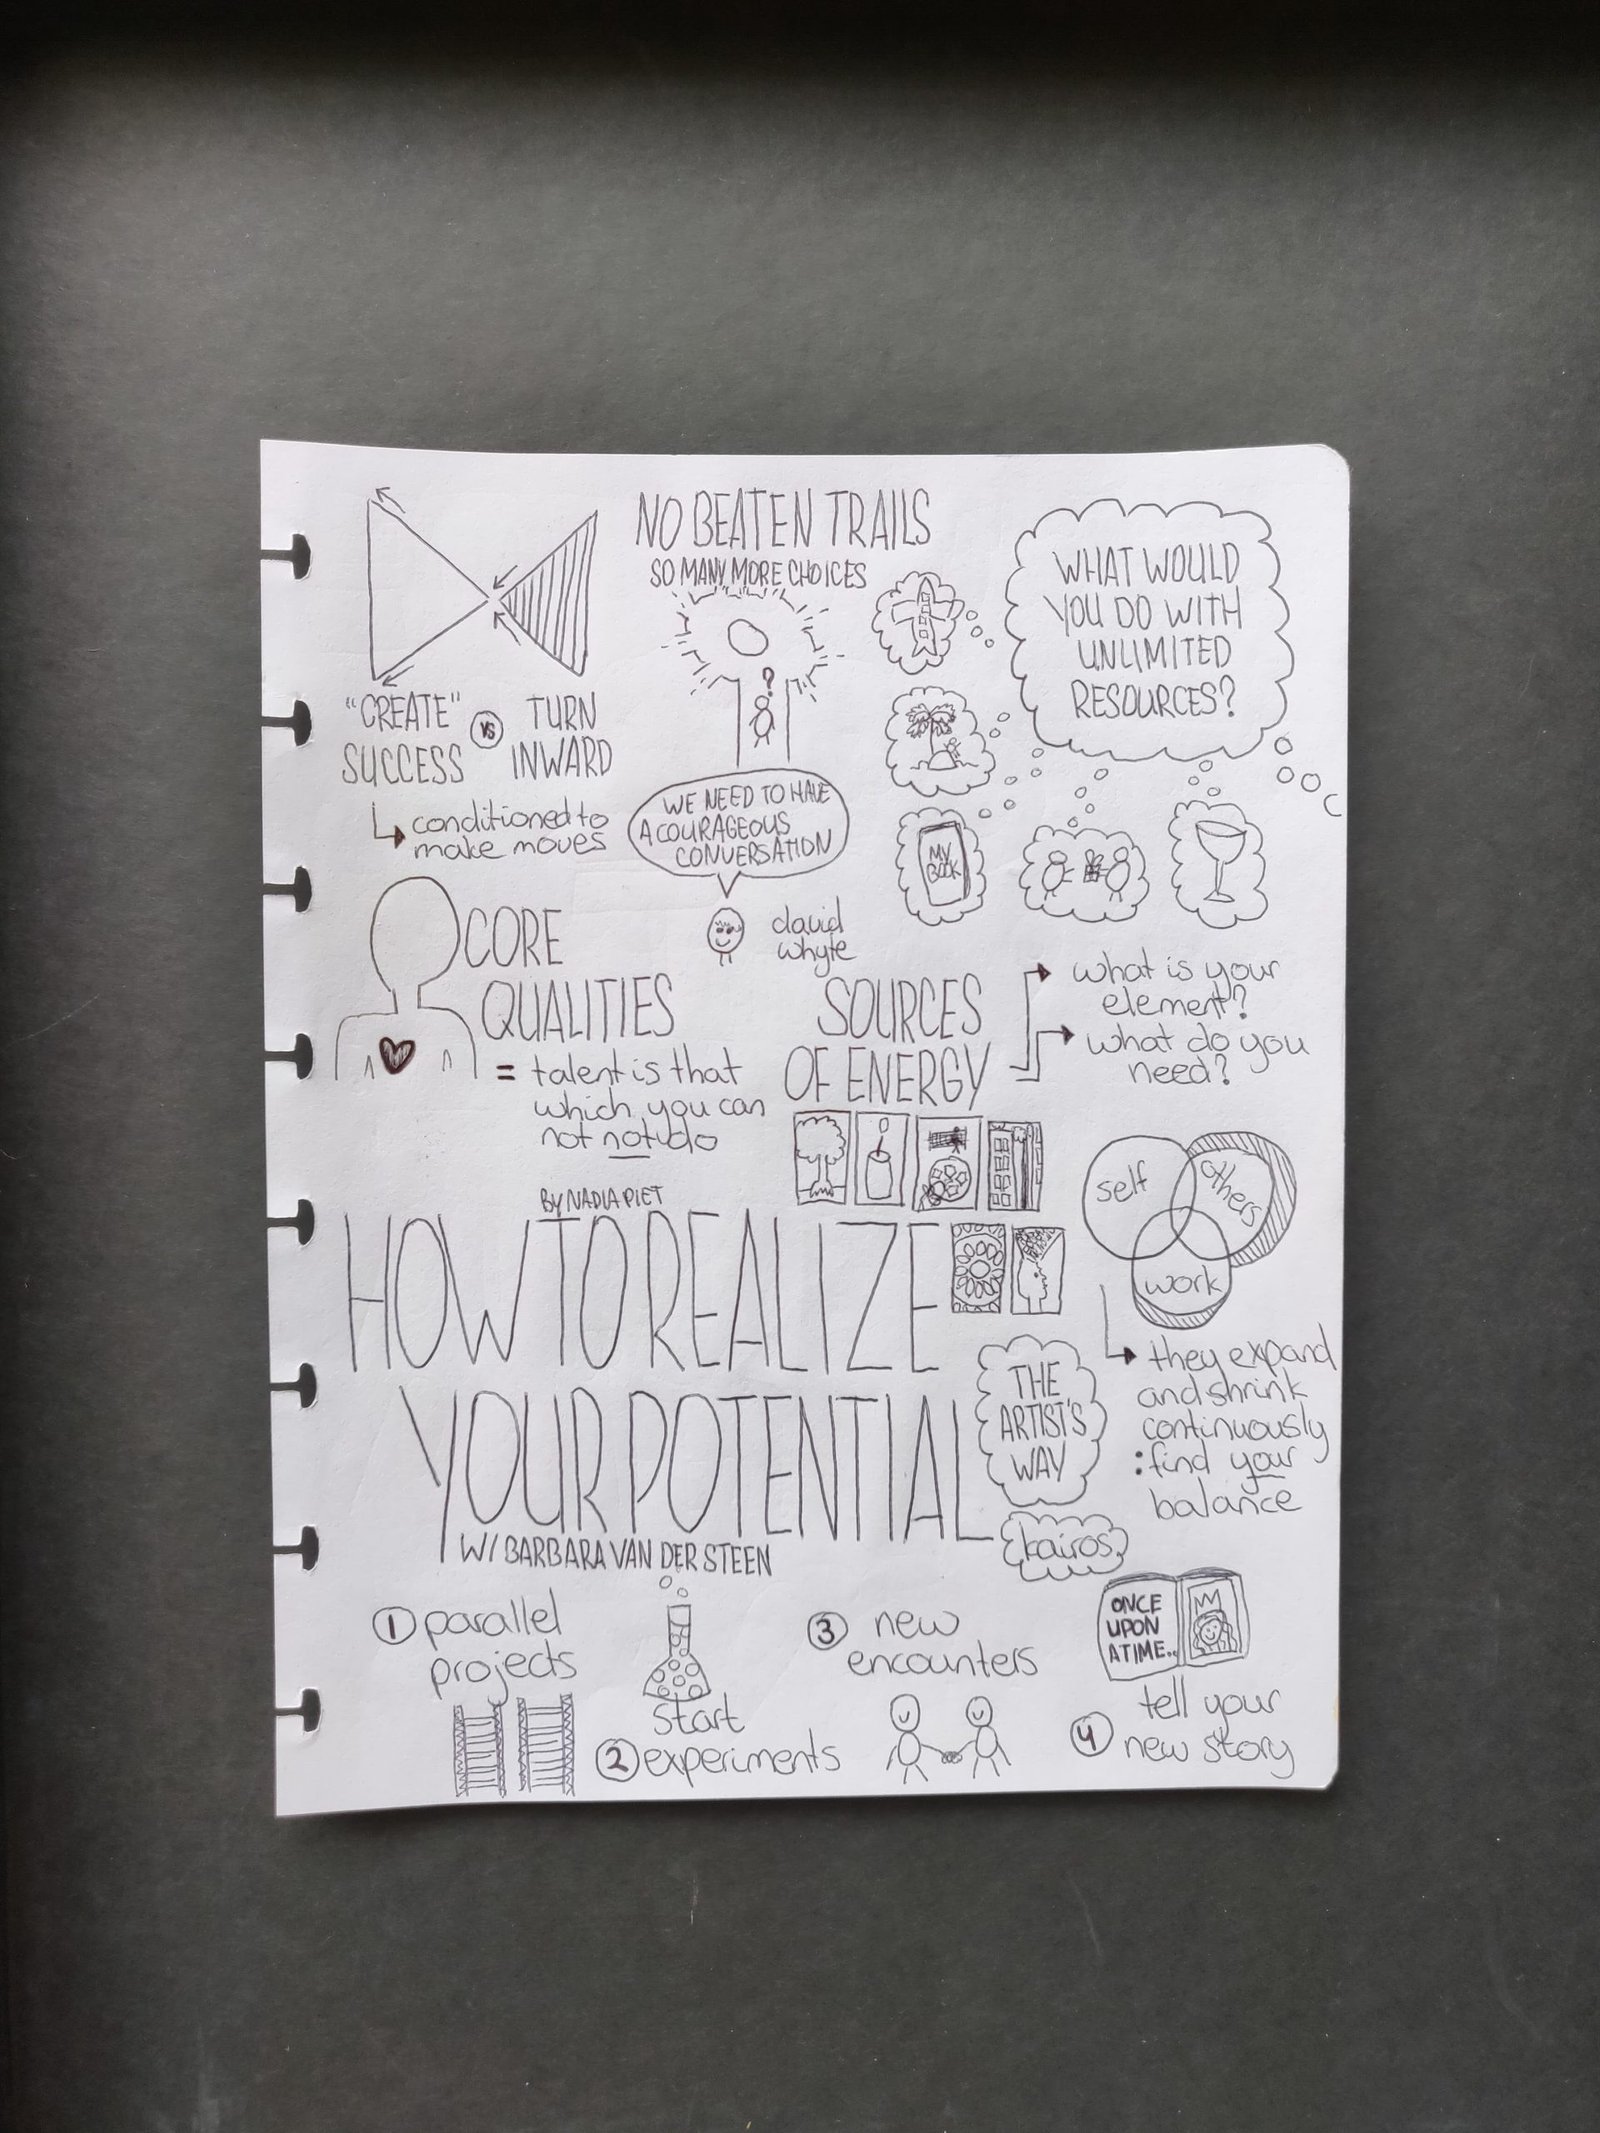 "CREATE"
SUCCESS
VS
TURN
INWARD
conditioned to
make moves
NO BEATEN TRAILS
SO MANY MORE CHOICES
?
WE NEED TO HAVE
A COURAGEOUS
CONVERSATION
david
whyte
WHAT WOULD
YOU DO WITH
UNLIMITED
RESOURCES?
MY
BOOK
CORE
QUALITIES
= talent is that
which you can
not not do
SOURCES
OF ENERGY
what is your
element?
what do you
need?
self
others
work
they expand
and shrink
continuously
: find your
balance
BY NADIA PIET
HOW TO REALIZE
YOUR POTENTIAL
W/ BARBARA VAN DER STEEN
THE
ARTIST'S
WAY
kairos
1 parallel
projects
start
2 experiments
3 new
encounters
ONCE
UPON
A TIME..
tell your
4 new story